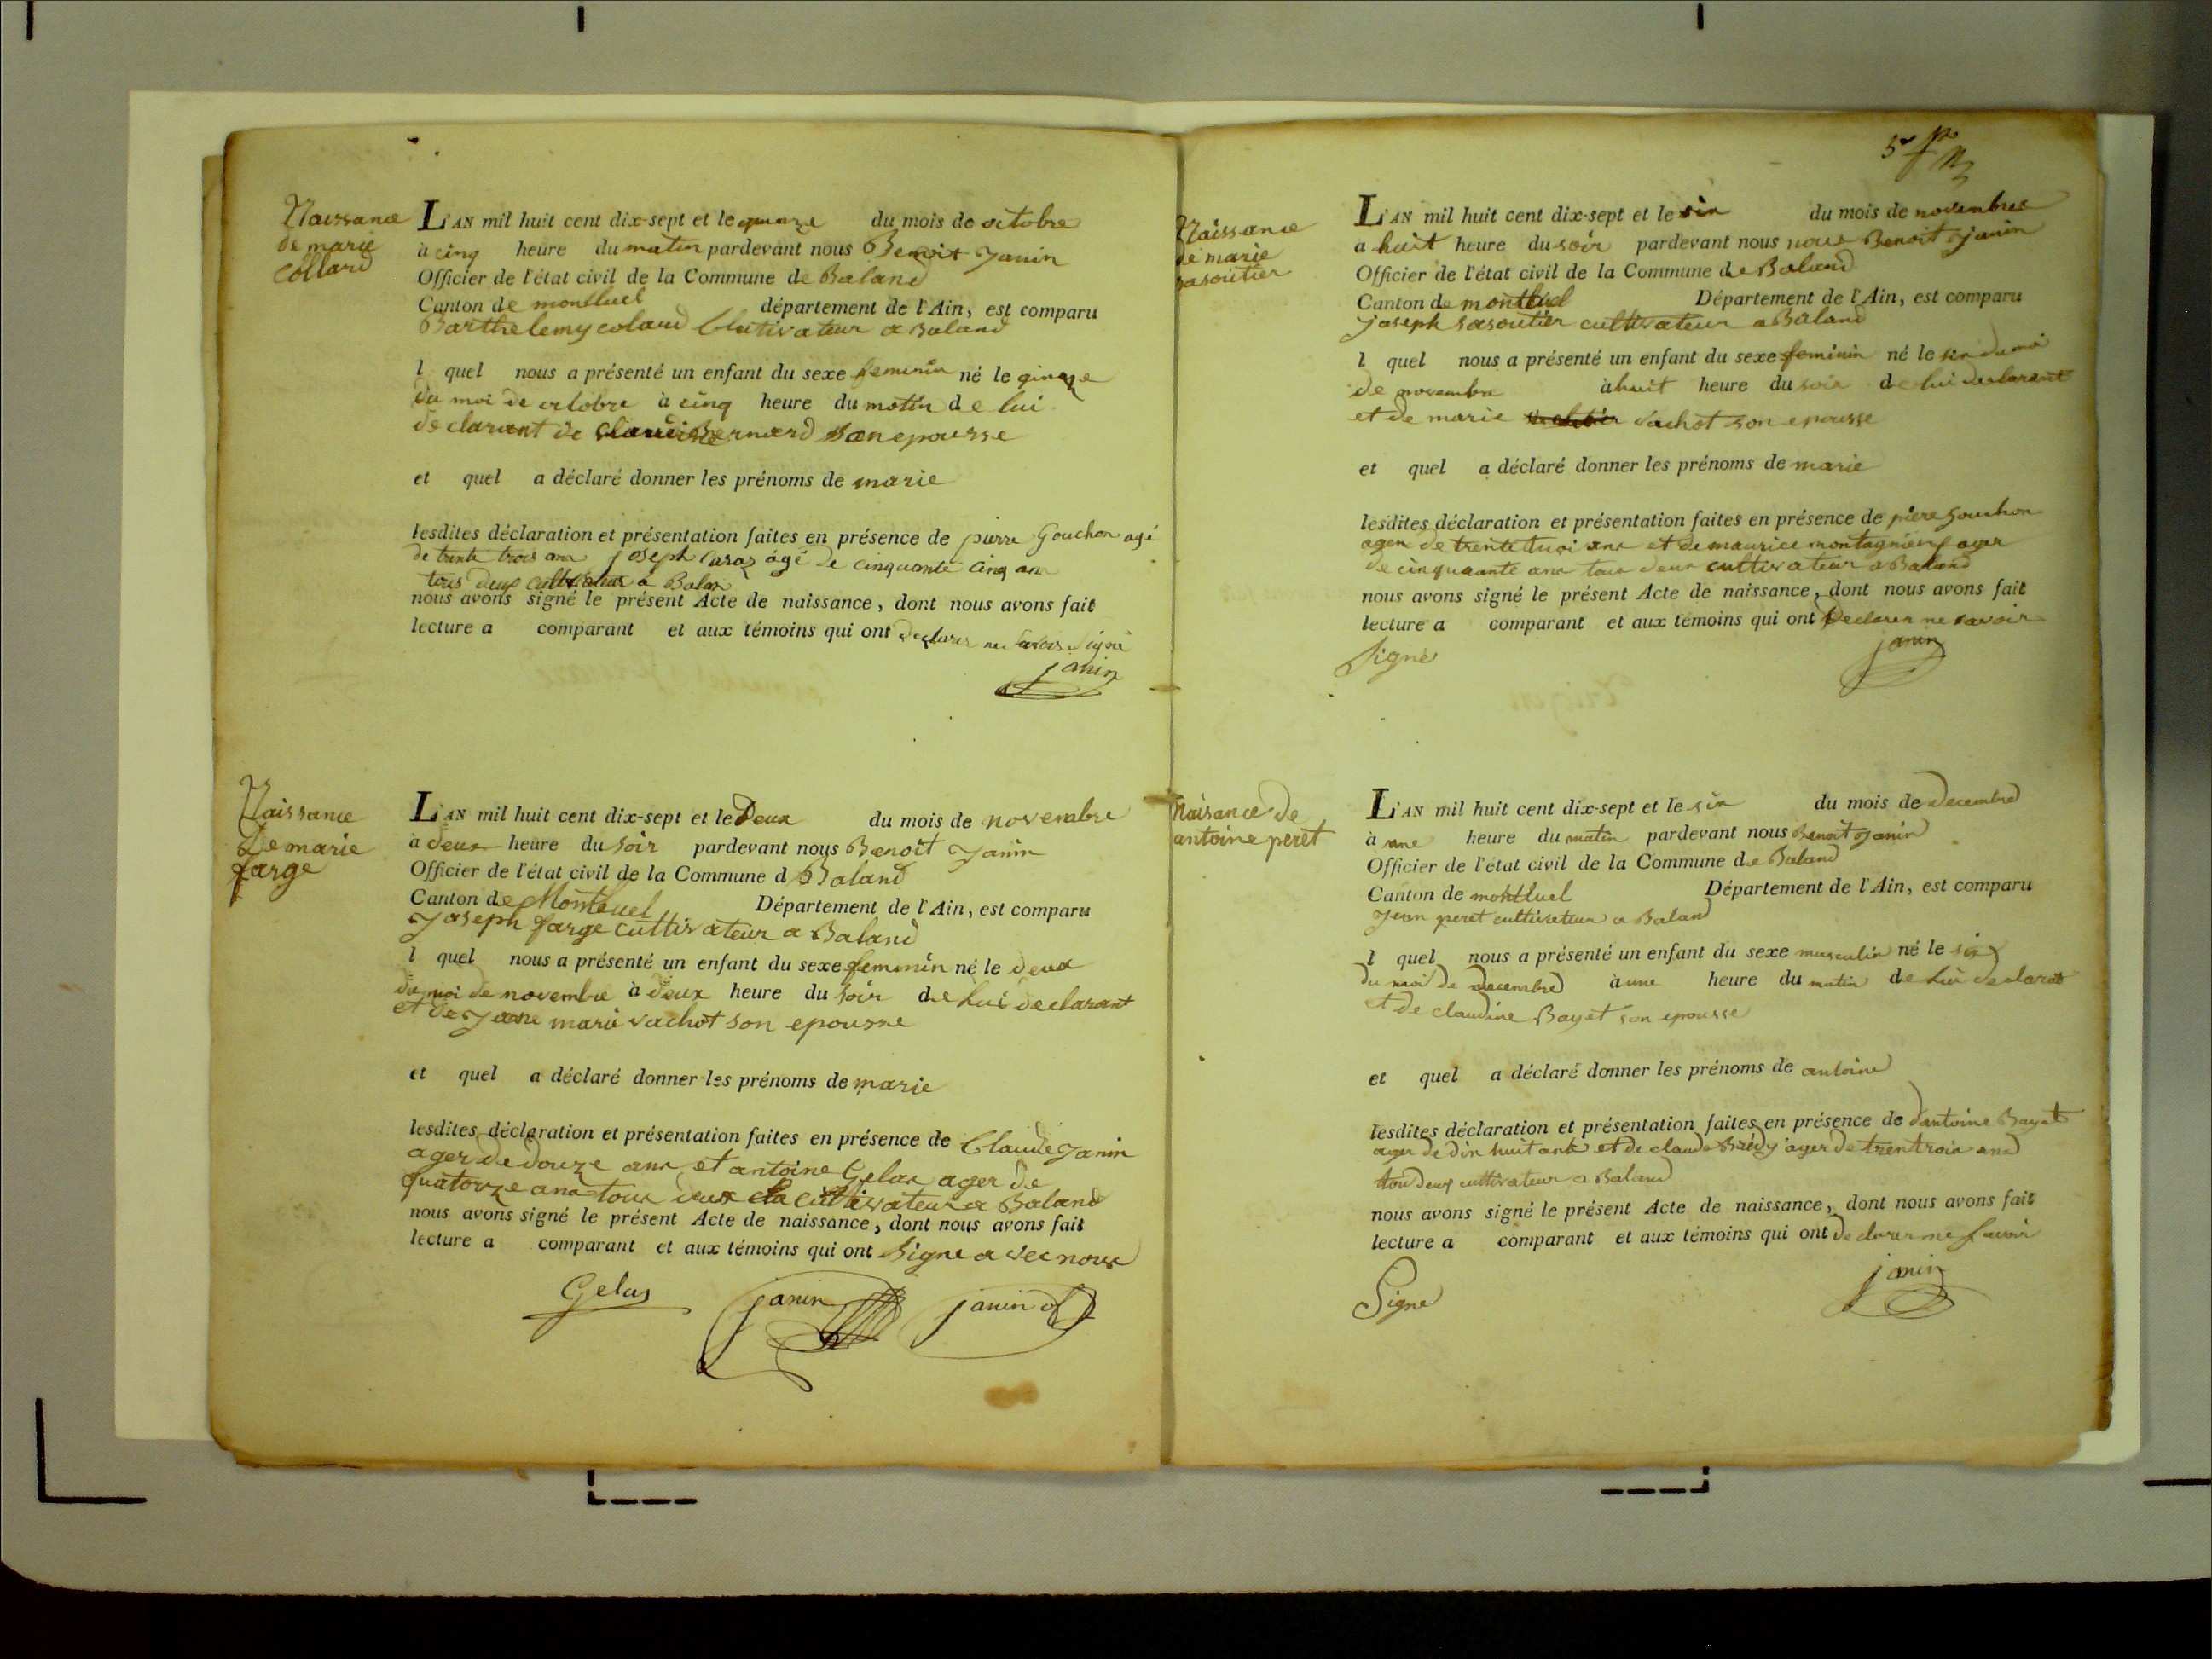 Naissance
de marie
Collard
L'AN mil huit cent dix-sept et le quinze du mois de octobre
à cinq heure du matin pardevant nous Benoit Janin
Officier de l'état civil de la Commune de Baland
Canton de montluel département de l'Ain, est comparu
Barthelemy colard Clutivateur a Baland
l quel nous a présenté un enfant du sexe feminin né le qinze
du moi de octobre à cinq heure du motin de lui
declarant de Claudine Bernard son epousse
et quel a déclaré donner les prénoms de marie
lesdites déclaration et présentation faites en présence de pierre Gouchon agé
de trente trois ans joseph âgé de cinquante cinq ans
tous deux cultivateur a Balan
nous avons signé le présent Acte de naissance, dont nous avons fait
lecture a comparant et aux témoins qui ont declarer ne savoir signé
janin
Naissance
De marie
farge
L'AN mil huit cent dix-sept et le Deux du mois de novembre
à deux heure du soir pardevant nous Benoit Janin
Officier de l'état civil de la Commune d Baland
Canton de Montluel Département de l'Ain, est comparu
Joseph farge cultivateur a Baland
l quel nous a présenté un enfant du sexe feminin né le deux
du moi de novembre à deux heure du soir de lui declarant
et de Jeane marie vachot son epousse
et quel a déclaré donner les prénoms de marie
lesdites déclaration et présentation faites en présence de Claude Janin
ager de douze ans et antoine Gelas ager de
quatorze ans tous deux cultivateur a Baland
nous avons signé le présent Acte de naissance, dont nous avons fait
lecture a comparant et aux témoins qui ont Signe a vec nous
Gelas janin janin
5e
Naissance
de marie
sasoutier
L'AN mil huit cent dix-sept et le six du mois de novembres
a huit heure du soir pardevant nous nous Benoit Janin
Officier de l'état civil de la Commune de Baland
Canton de montluel Département de l'Ain, est comparu
joseph sasoutier cultivateur a Baland
l quel nous a présenté un enfant du sexe feminin né le six du moi
de novembre à huit heure du soir de lui declarant
et de marie vachot son epousse
et quel a déclaré donner les prénoms de marie
lesdites déclaration et présentation faites en présence de piere Gouchon
ager de trente troi ans et de maurice montagnier ager
de cinquante ans tous deux cultivateur a Baland
nous avons signé le présent Acte de naissance, dont nous avons fait
lecture a comparant et aux témoins qui ont Declarer ne savoir
Signé janin
Naisance de
antoine peret
L'AN mil huit cent dix-sept et le six du mois de decembre
à une heure du matin pardevant nous Benoit Janin
Officier de l'état civil de la Commune de Baland
Canton de montluel Département de l'Ain, est comparu
Jean peret cultivateur a Baland
l quel nous a présenté un enfant du sexe musculin né le six
du moi de decembre à une heure du matin de lui declarant
et de claudine Bayet son epousse
et quel a déclaré donner les prénoms de antoine
lesdites déclaration et présentation faites en présence de dantoine Bayet
ager de dix huit ans et de claude ager de trentroix ans
tou deux cultivateur a Baland
nous avons signé le présent Acte de naissance, dont nous avons fait
lecture a comparant et aux témoins qui ont declarer ne savoir
Signe janin